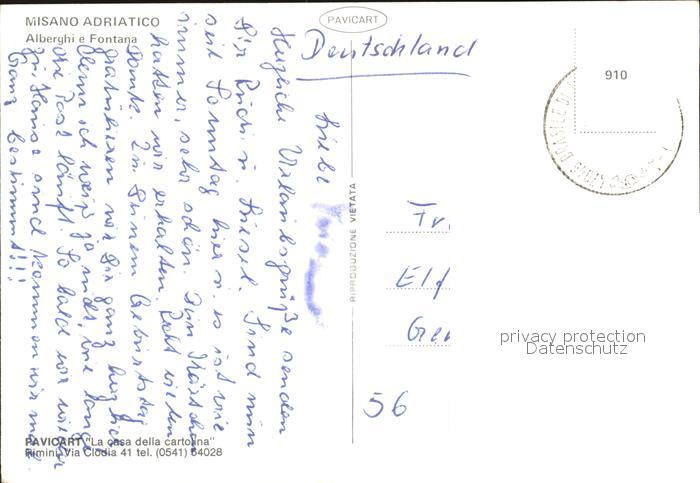 MISANO ADRIATICO
Alberghi e Fontana
PAVICART
Deutschland
910
Liebe
Herzliche Urlaubsgrüße senden
Dir Ruch u. Sind nun
seit Sonntag hier u. es ist wie
immer, sehr schön. Dein Kärtchen
hatten wir erhalten. Recht vielen
Dank. Zu Deinem Geburtstag
gratulieren wir Dir ganz herzlich
denn ich weiß ja nicht, wie lange
die Post läuft. So bald wir wieder
zu Hause sind kommen wir mal.
Ganz bestimmt!!!
RIPRODUZIONE VIETATA
Fr
Elf
Ger
56
privacy protection
Datenschutz
PAVICART "La casa della cartolina"
Rimini Via Clodia 41 tel. (0541) 54028